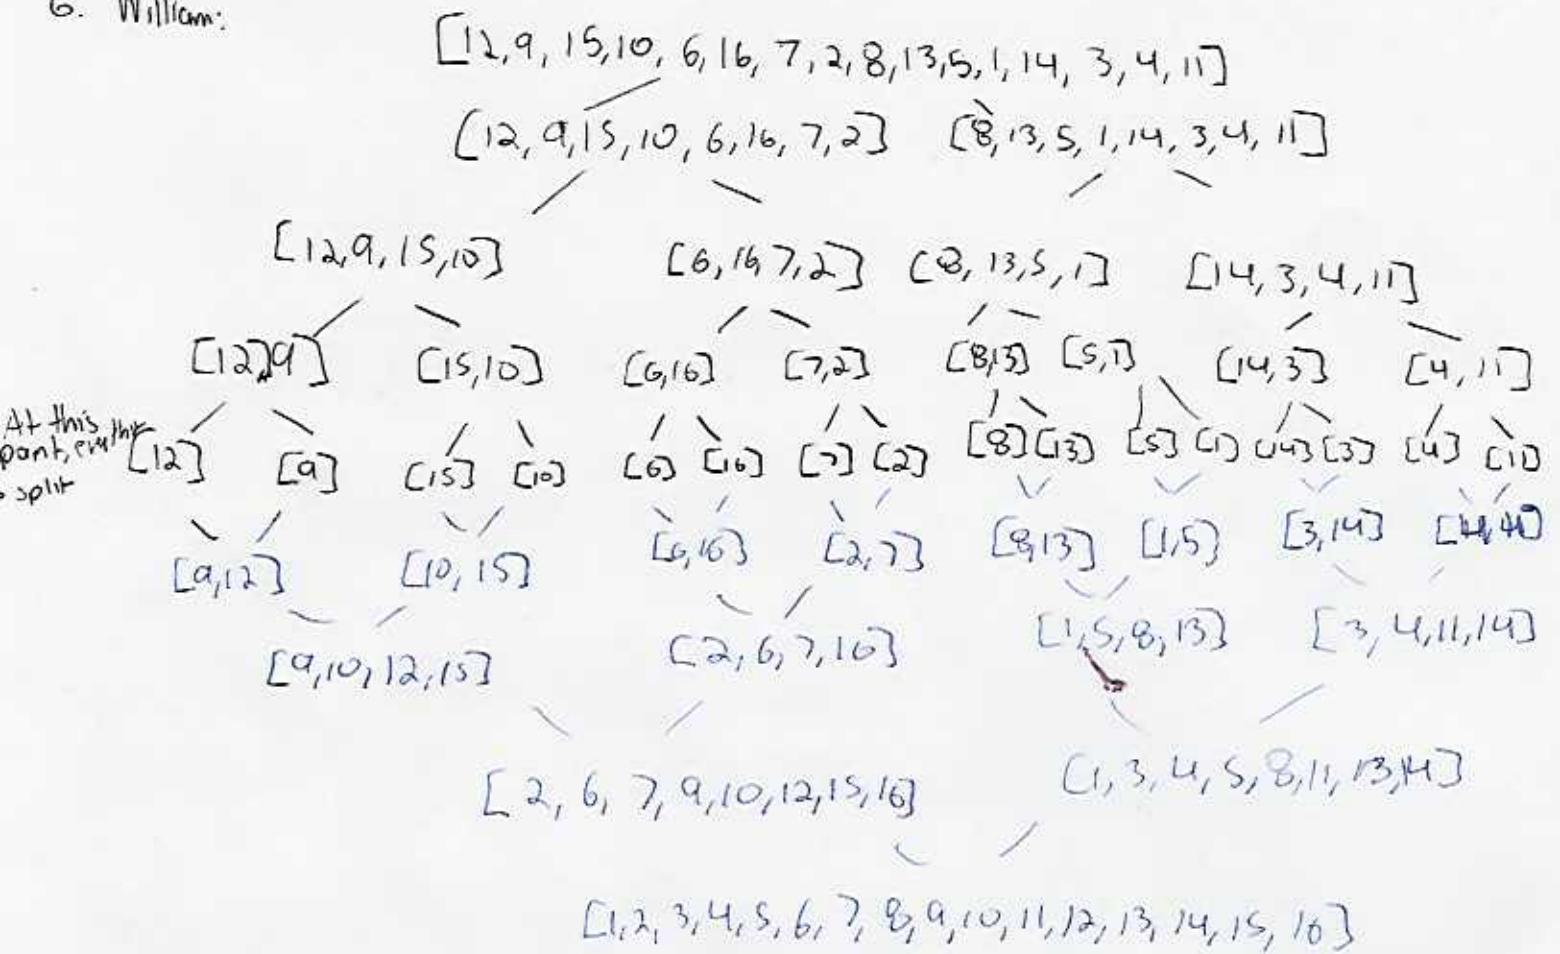 6. William:
[12, 9, 15, 10, 6, 16, 7, 2, 8, 13, 5, 1, 14, 3, 4, 11]
[12, 9, 15, 10, 6, 16, 7, 2] [8, 13, 5, 1, 14, 3, 4, 11]
[12, 9, 15, 10] [6, 16, 7, 2] [8, 13, 5, 1] [14, 3, 4, 11]
[12], 9] [15, 10] [6, 16] [7, 2] [8, 13] [5, 1] [14, 3] [4, 11]
At this
point,
split
[12] [9] [15] [10] [6] [16] [7] [2] [8] [13] [5] [1] [14] [3] [4] [11]
[9, 12] [10, 15] [6, 16] [2, 7] [8, 13] [1, 5] [3, 14]
[9, 10, 12, 15] [2, 6, 7, 16] [1, 5, 8, 13] [3, 4, 11, 14]
[2, 6, 7, 9, 10, 12, 15, 16] [1, 3, 4, 5, 8, 11, 13, 14]
[1, 2, 3, 4, 5, 6, 7, 8, 9, 10, 11, 12, 13, 14, 15, 16]